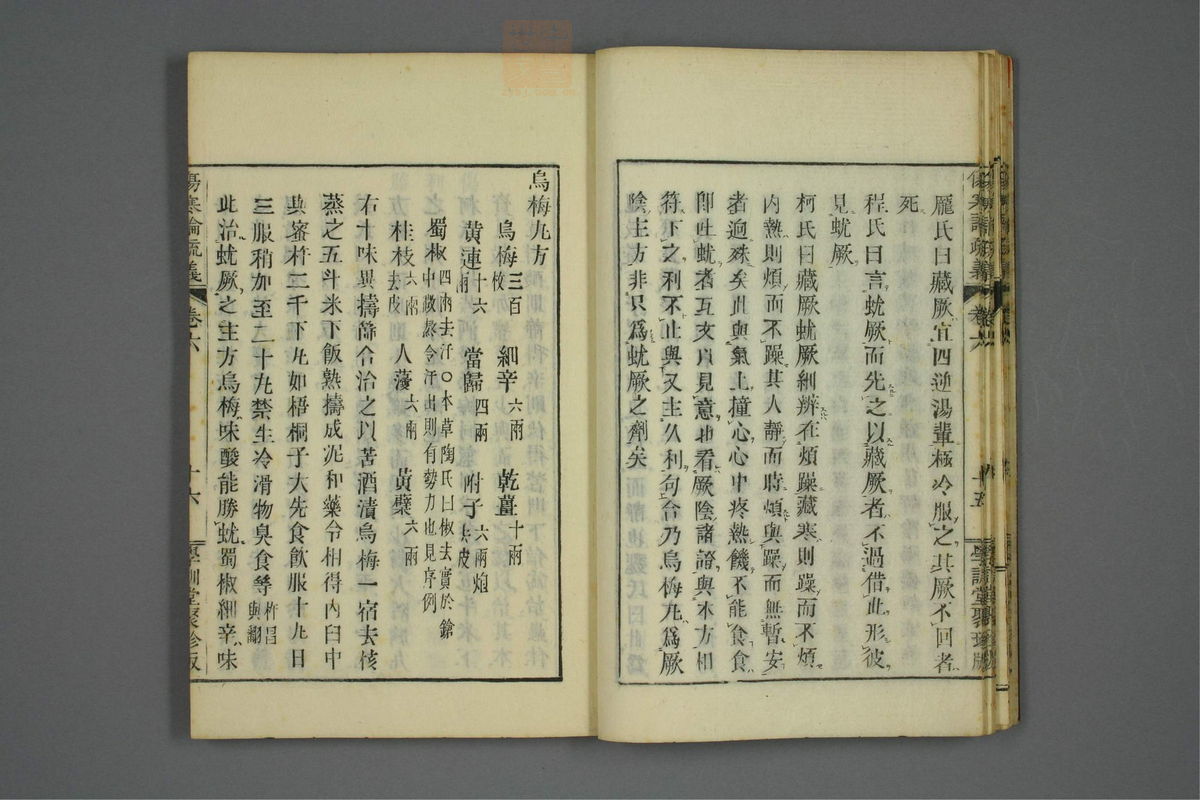 龐氏曰藏厥宜四逆湯輩極冷服之其厥不回者
死
程氏曰言蚘厥而先之以藏厥者不過借此形彼
見蚘厥
柯氏曰藏厥蚘厥細辨在煩躁藏寒則躁而不煩
內熱則煩而不躁其人靜而時煩與躁而無暫安
者逈殊矣此與氣上撞心心中疼熱饑不能食食
卽吐蚘者互文以見意也看厥陰諸證與本方相
符下之利不止與又主久利句合乃烏梅丸爲厥
陰主方非只爲蚘厥之劑矣
傷寒論疏義 卷六 十五 學訓堂聚珍版
烏梅丸方
烏梅三百枚 細辛六兩 乾薑十兩
黃連十六兩 當歸四兩 附子六兩炮去皮
蜀椒四兩去汗〇本草陶氏曰椒去實於鎗
中微熬令汗出則有勢力也見序例
桂枝六兩去皮 人薓六兩 黃檗六兩
右十味異擣篩合治之以苦酒漬烏梅一宿去核
蒸之五斗米下飯熟擣成泥和藥令相得內臼中
與蜜杵二千下丸如梧桐子大先食飮服十丸日
三服稍加至二十丸禁生冷滑物臭食等
此治蚘厥之主方烏梅味酸能勝蚘蜀椒細辛味
傷寒論疏義 卷六 十六 學訓堂聚珍版